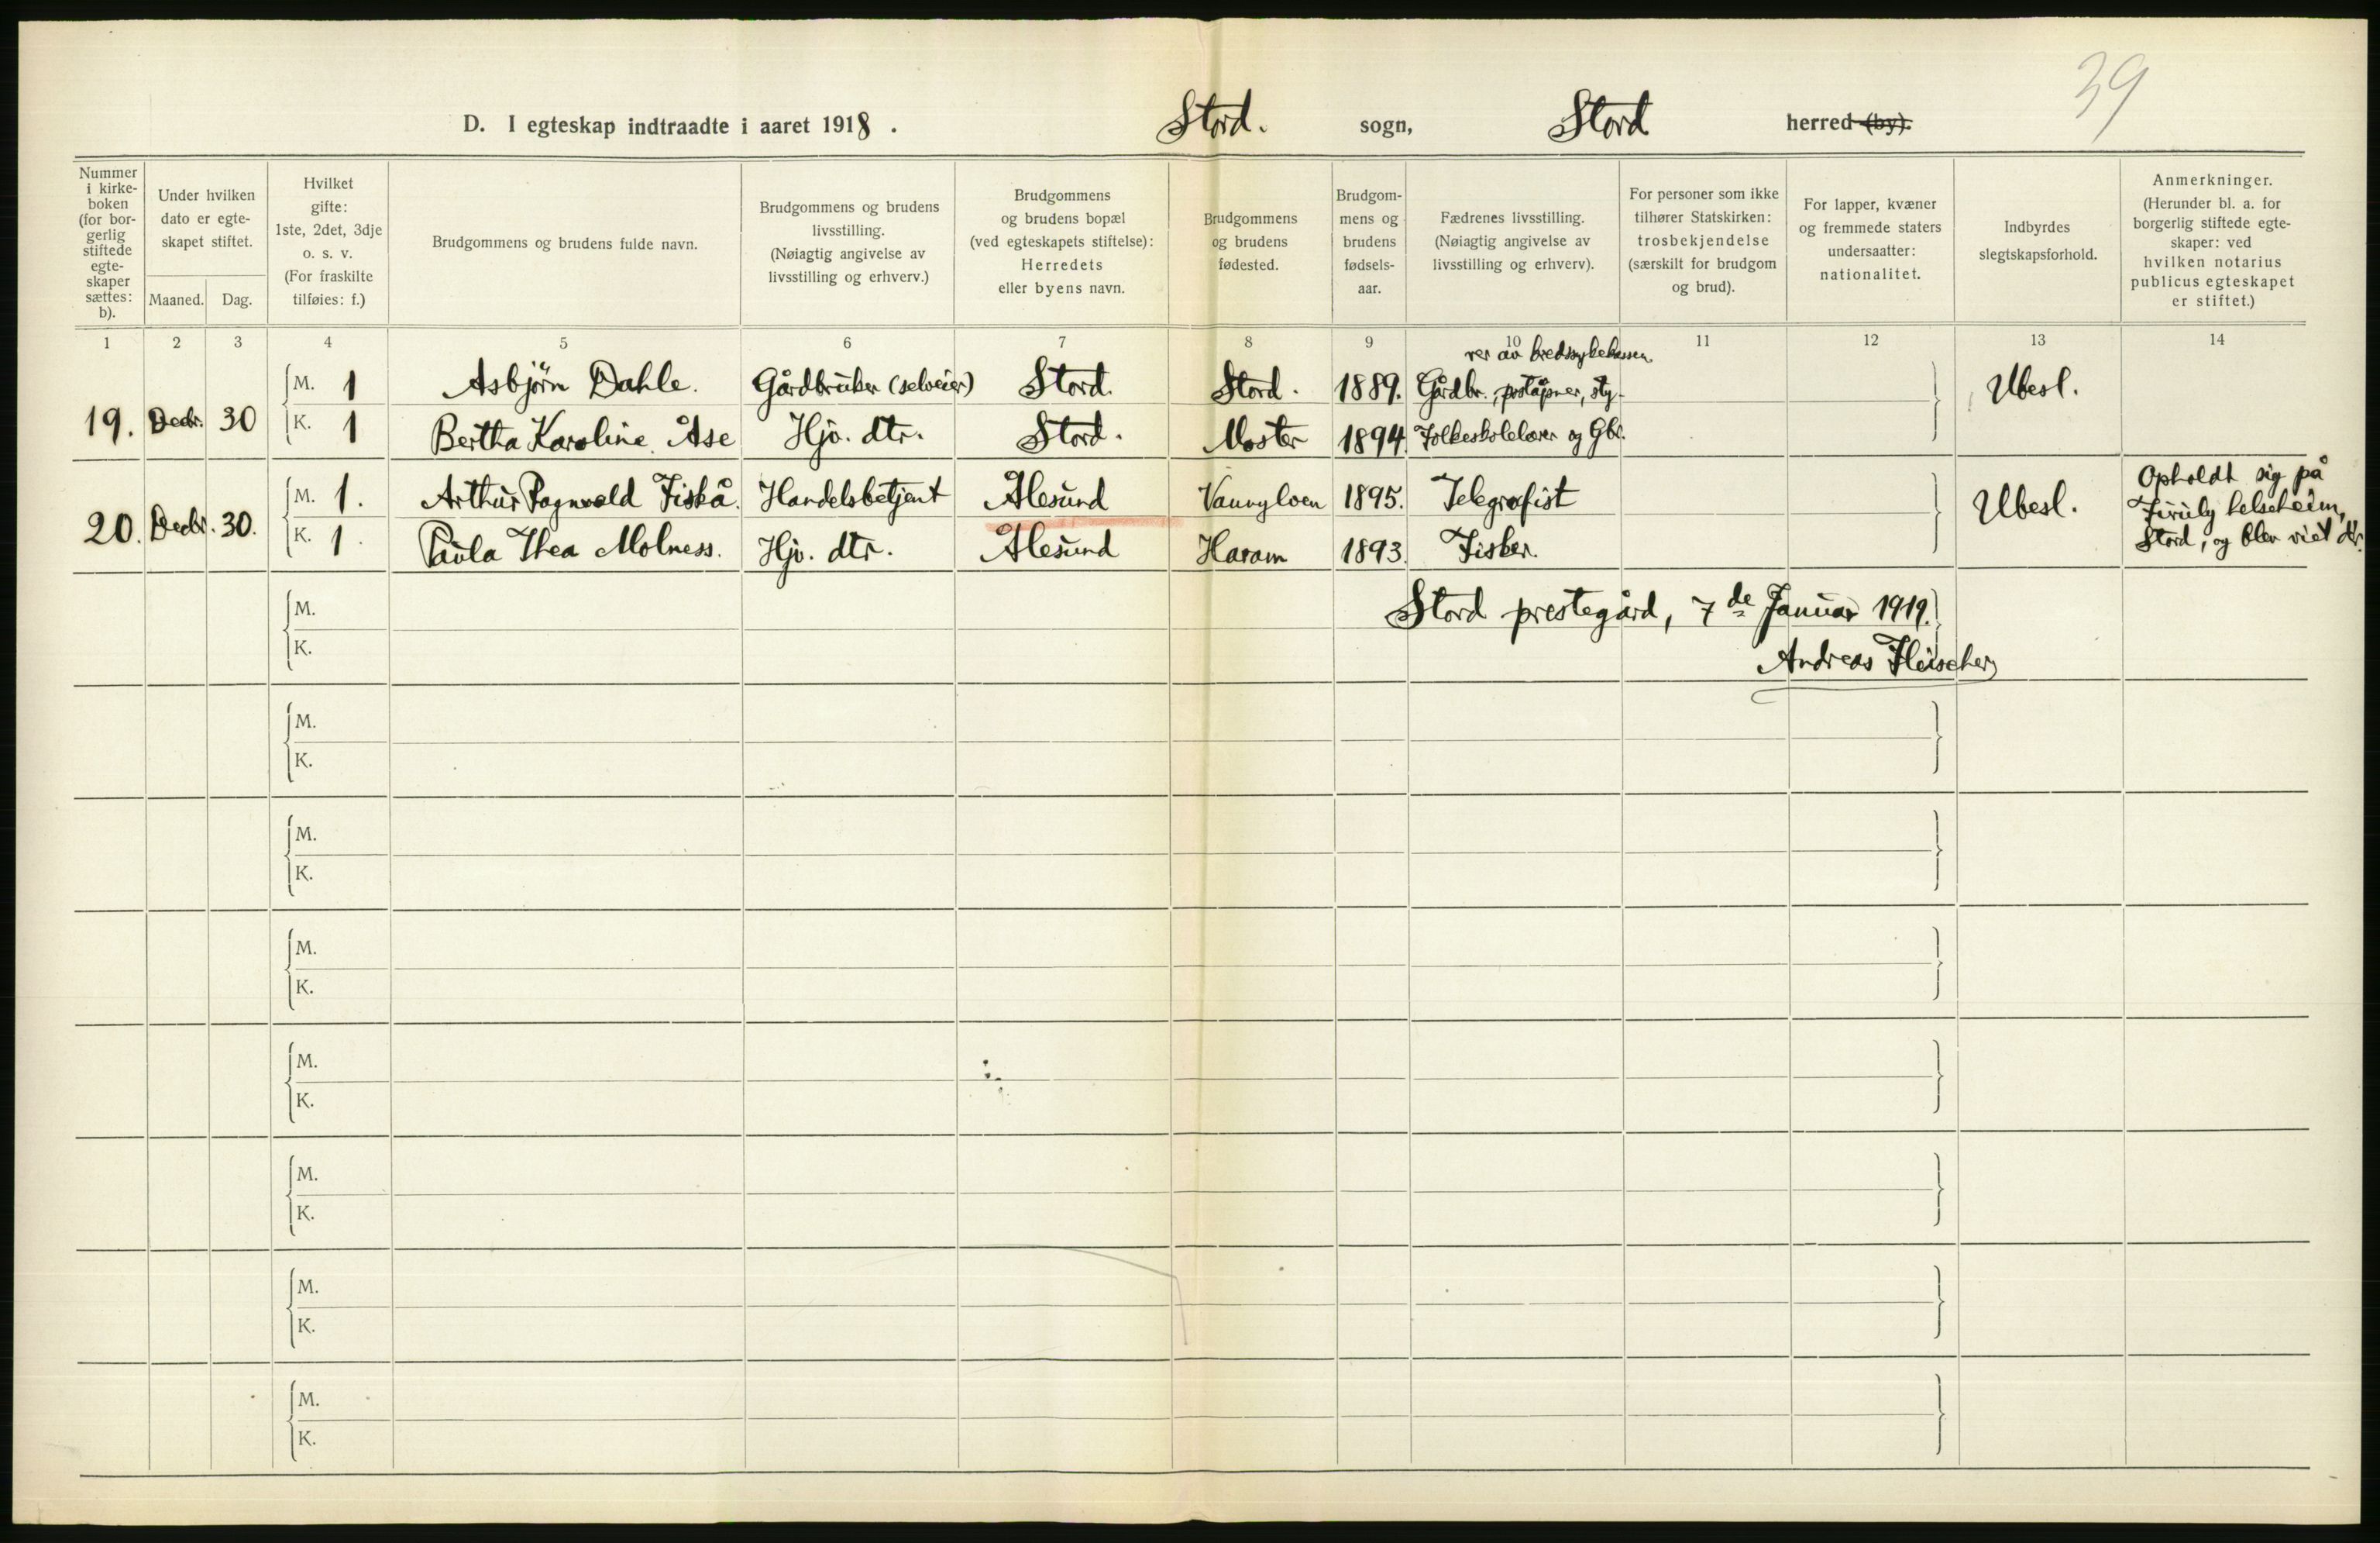 39
D. I egteskap indtraadte i aaret 1918 . Stord. sogn, Stord herred (by).
Nummer i kirke- boken (for bor- gerlig stiftede egte- skaper sættes: b).
Under hvilken dato er egte- skapet stiftet.
Maaned. Dag.
Hvilket gifte: 1ste, 2det, 3dje o. s. v. (For fraskilte tilføies: f.)
Brudgommens og brudens fulde navn.
Brudgommens og brudens livsstilling. (Nøiagtig angivelse av livsstilling og erhverv.)
Brudgommens og brudens bopæl (ved egteskapets stiftelse): Herredets eller byens navn.
Brudgommens og brudens fødested.
Brudgom- mens og brudens fødsels- aar.
Fædrenes livsstilling. (Nøiagtig angivelse av livsstilling og erhverv).
For personer som ikke tilhører Statskirken: trosbekjendelse (særskilt for brudgom og brud).
For lapper, kvæner og fremmede staters undersaatter: nationalitet.
Indbyrdes slegtskapsforhold.
Anmerkninger. (Herunder bl. a. for borgerlig stiftede egte- skaper: ved hvilken notarius publicus egteskapet er stiftet.)
1 2 3 4 5 6 7 8 9 10 11 12 13 14
19. Decbr. 30
M. 1 Asbjörn Dahle. Gårdbruker (selveier) Stord. Stord. 1889. Gårdbr., poståpner, sty- rer av kredssykekassen. Ubesl.
K. 1 Bertha Karoline Åse Hjv. dtr. Stord. Moster 1894. Folkeskolelærer og Gbr.
20. Decbr. 30.
M. 1. Arthur Ragnvald Fiskå. Handelsbetjent Ålesund Vannylven 1895. Telegrafist Ubesl. Opholdt sig på Furuly helseheim, Stord, og blev viet der.
K. 1. Paula Thea Molness. Hjv. dtr. Ålesund Haram 1893. Fisker.
M.
K.
Stord prestegård, 7de Januar 1919.
Andreas Fleischer
M.
K.
M.
K.
M.
K.
M.
K.
M.
K.
M.
K.
M.
K.